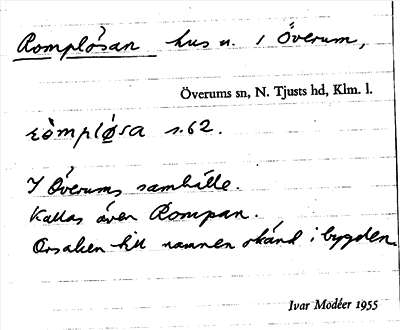 Romplösan hus n. i Överum,
Överums sn, N. Tjusts hd, Klm. l.
s.62.
I Överums samhälle.
Kallas även Rompan.
Orsaken till namnen okänd i bygden.
Ivar Modéer 1955